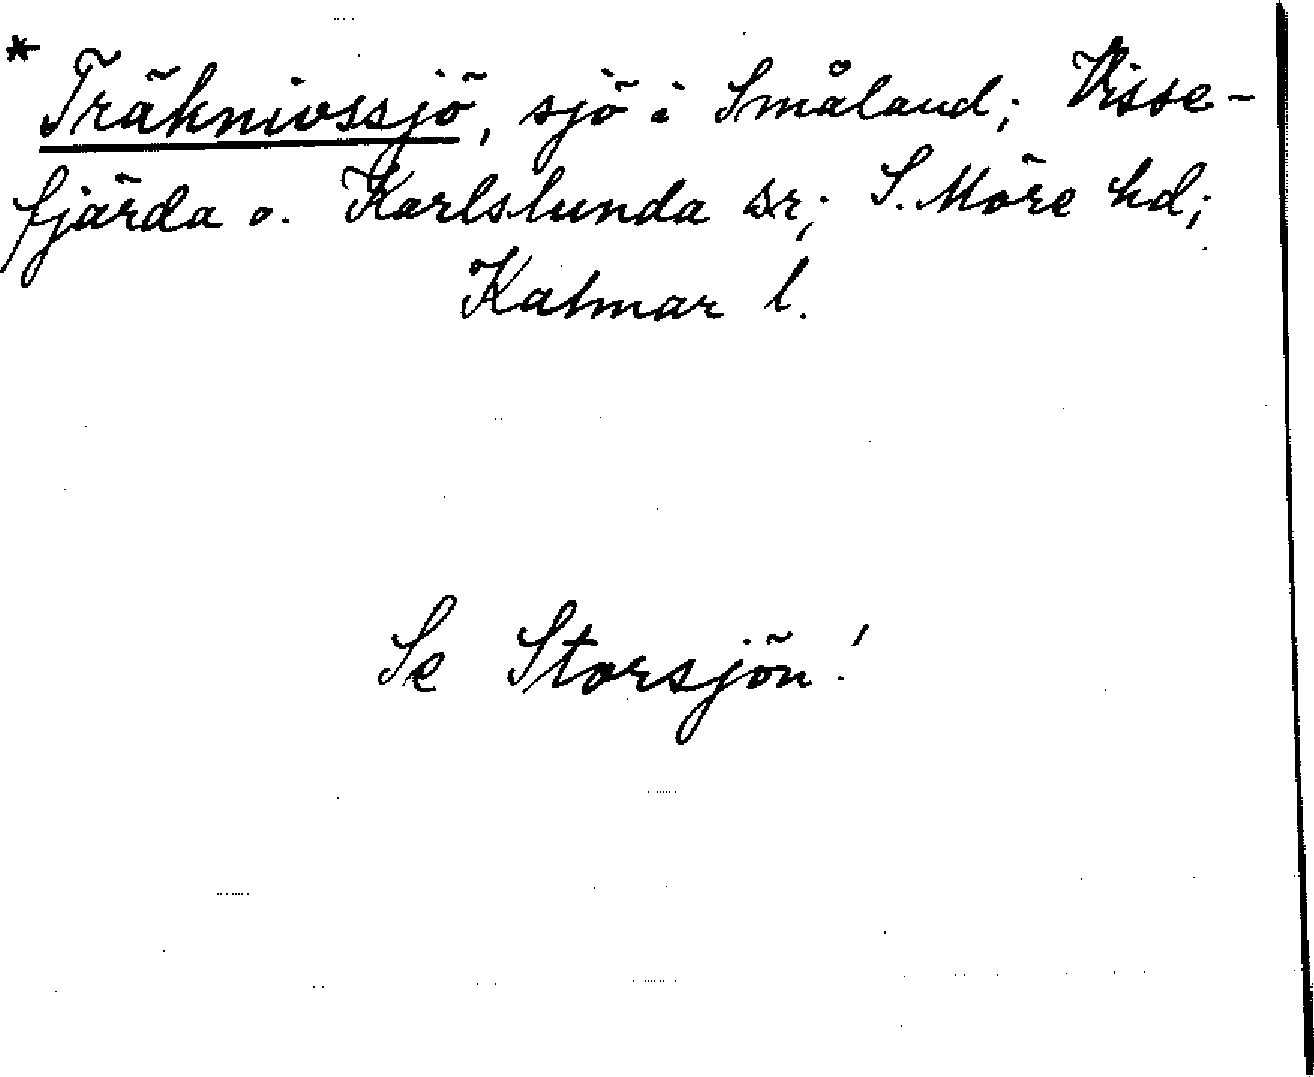 * Träknivssjö, sjö i Småland; Visse-
fjärda o. Karlslunda sr; S. Möre hd;
Kalmar l.
Se Storsjön!